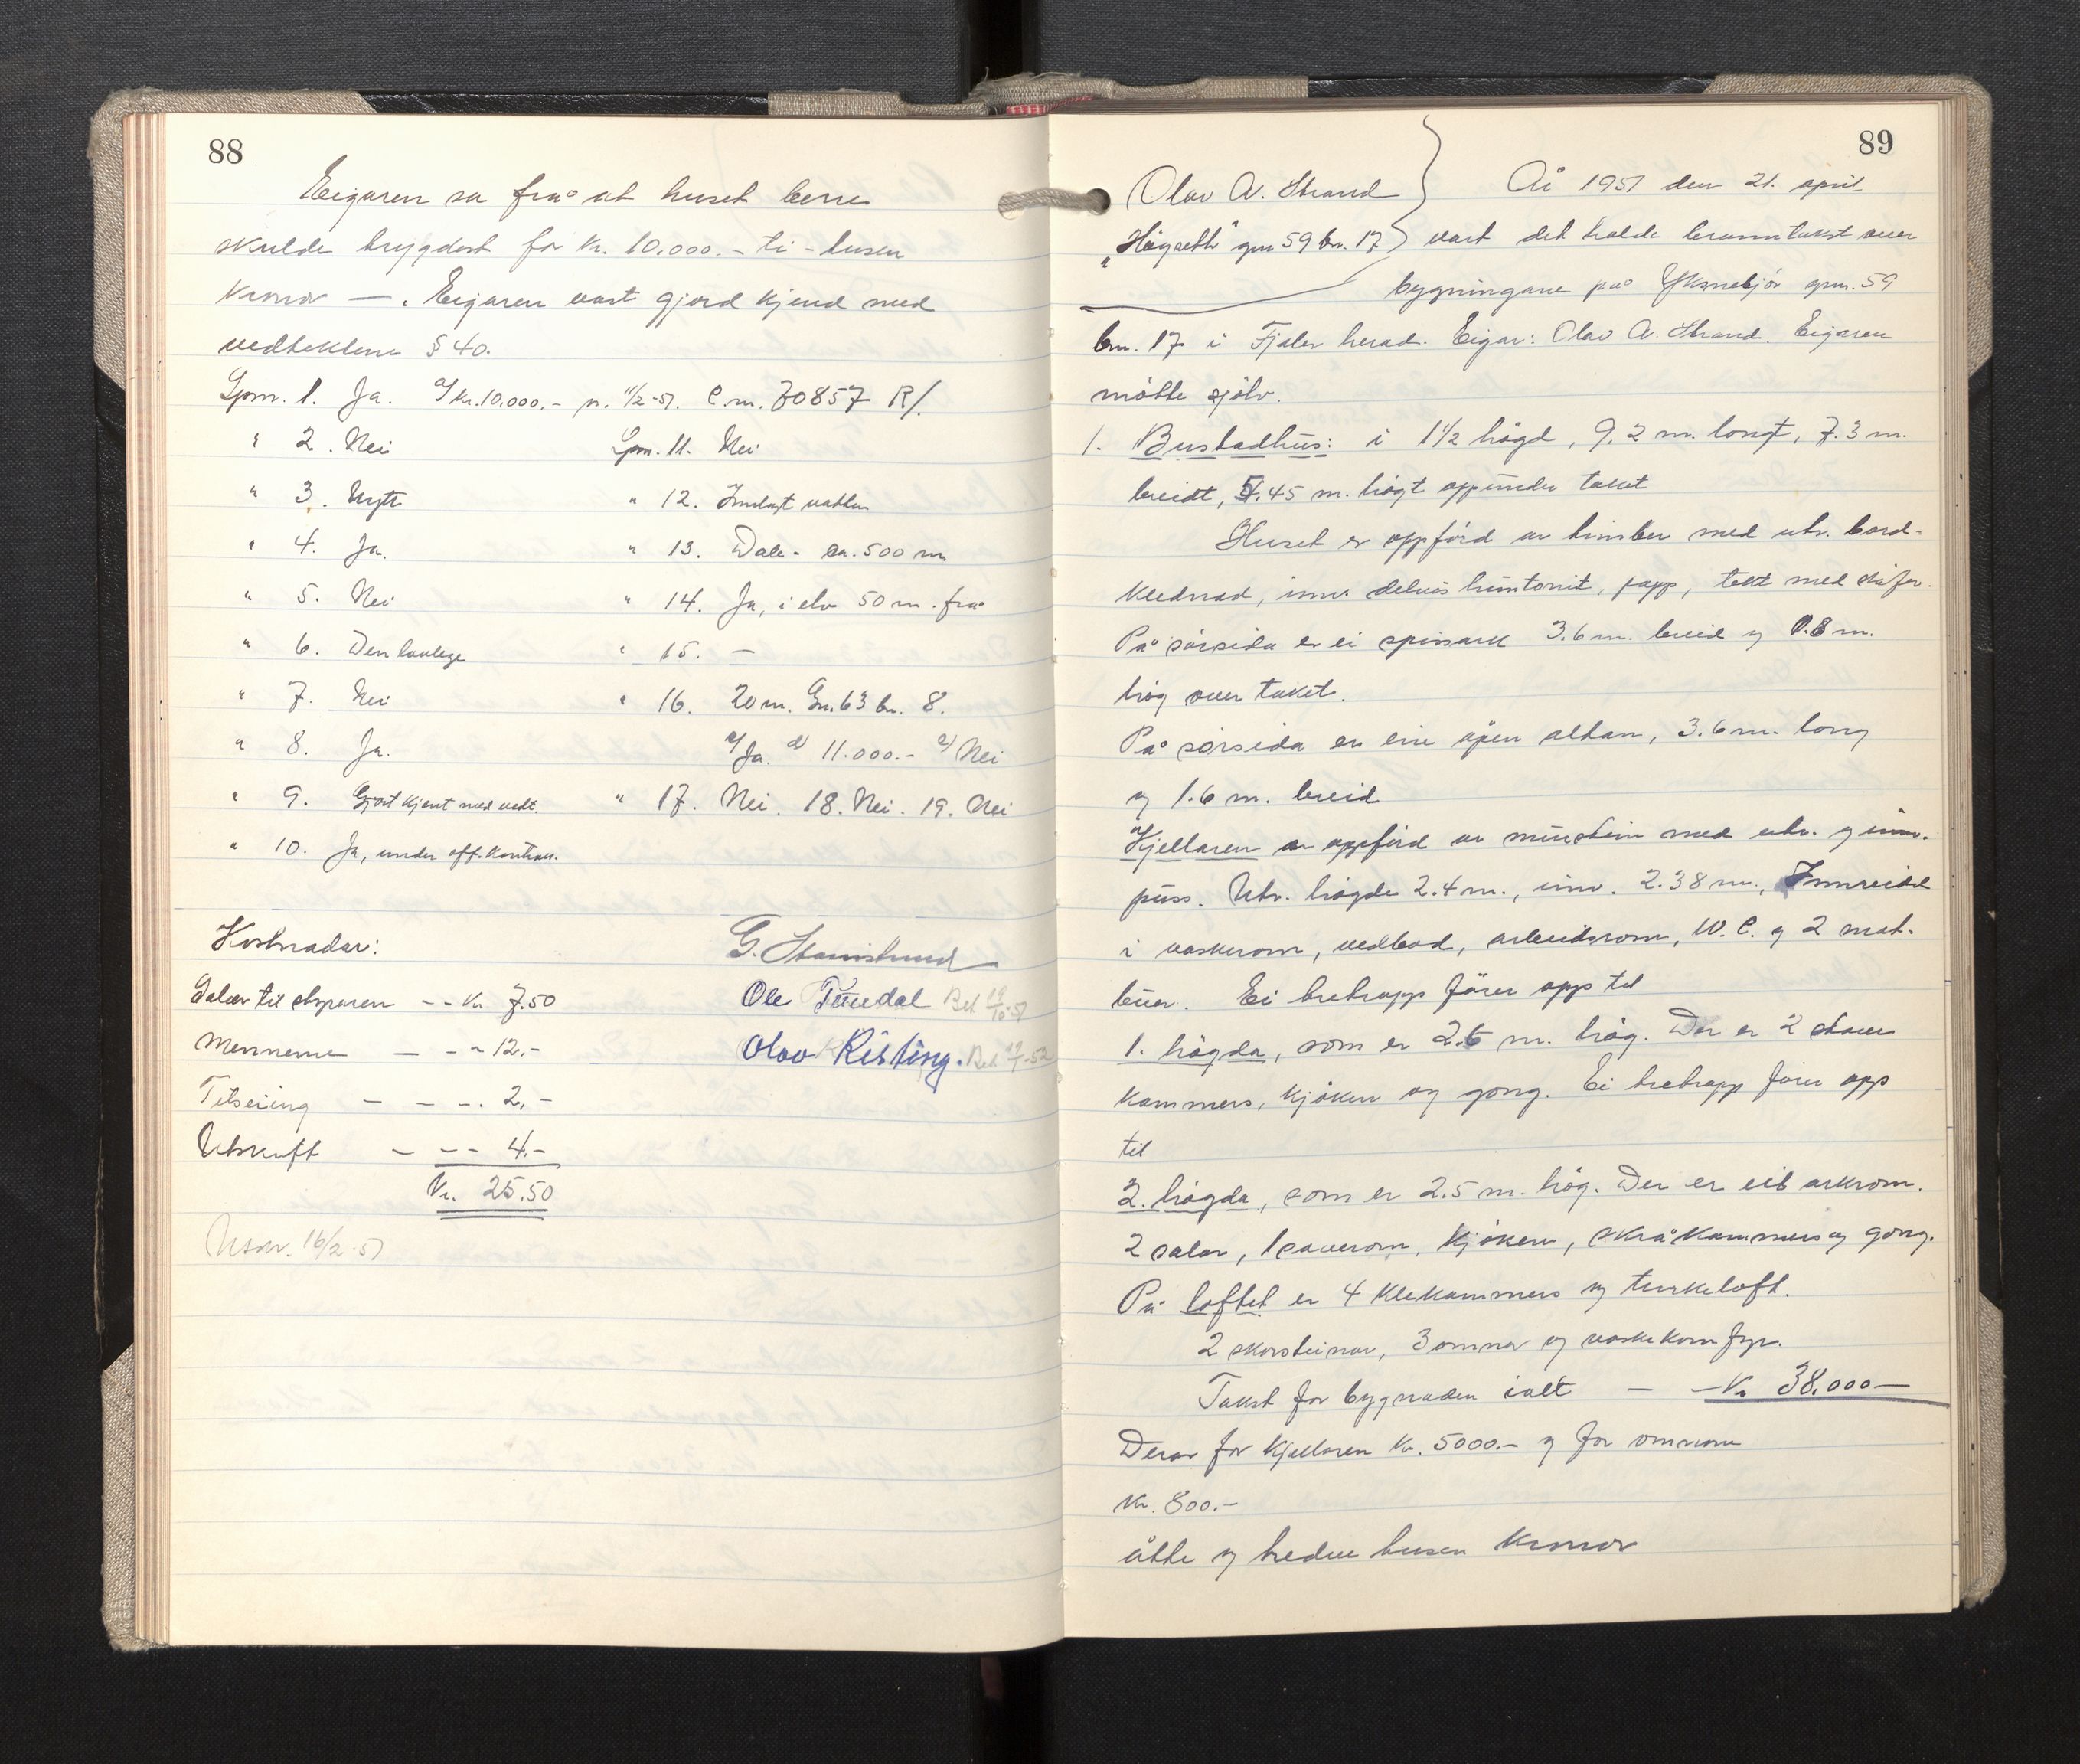 88
Eigaren sa frå at huset berre
skulde trygdast for kr. 10.000.- ti-tusen
kronor —. Eigaren vart gjord kjend med
vedtektene § 40.
Spm. 1. Ja. a/ kr. 10.000.- p. 11/2-51. C.m. 70857 R/.
" 2. Nei
" 3. Nytt
" 4. Ja.
" 5. Nei
" 6. Den lovlege
" 7. Nei
" 8. Ja.
" 9. Gjort kjent med vedt.
" 10. Ja, under off. kontroll.
Spm. 11. Nei
" 12. Innlagt vatten
" 13. Dale - ca. 500 m
" 14. Ja, i elv 50 m. frå
" 15. —
" 16. 20 m. Gn. 63 br. 8.
a/ Ja. d/ 11.000.- e/ Nei
" 17. Nei. 18. Nei. 19. Nei
Kostnadar:
Salær til skjønaren -- kr. 7.50
Mennene — - - " 12.-
Titseiing — - — . 2,-
Utskrift — - - 4.-
Kr. 25.50
Utskr. 16/2-51
G. Stamslund
Ole Tundal Bet 19/10-51
Olav Risting. Bet
89
Olav A. Strand
"Høgsett" gnr 59 br. 17
År 1951 den 21. april
vart det halde branntakst over
bygningane på Yksnebjør gnr. 59
bnr. 17 i Fjaler herad. Eigar: Olav A. Strand. Eigaren
møtte sjølv.
1. Bustadhus: i 1½ høgd, 9,2 m. langt, 7.3 m.
breidt, 5.45 m. høgt oppunder taket
Huset er oppførd av timber med utv. bord-
klednad, innv. delvis huntonit, papp, tekt med skifer.
På sørsida er ei spissark 3.6 m. breid og 0.8 m.
høg over taket.
På sørsida er ein åpen altan, 3.6 m. lang
og 1.6 m. breid
Kjellaren er oppførd av murstein med utv. og innv.
puss. Utv. høgde 2.4 m., innv. 2.38 m., Innreidd
i vaskerom, vedbod, arbeidsrom, W.C. og 2 mat-
buer. Ei tretrapp fører opp til
1. høgda, som er 2.6 m. høg. Der er 2 stover
kammers, kjøken og gong. Ei tretrapp fører opp
til
2. høgda, som er 2.5 m. høg. Der er eit arkrom.
2 salar, 1 soverom, kjøken, skråkammers og gong.
På loftet er 4 klekammers og turkeloft.
2 skorsteinar, 3 omnar og vaskekomfyr.
Takst for bygnaden ialt — — Kr 38.000—
Derav for kjellaren kr. 5000.- og for omnane
kr. 800.-
åtte og tredve tusen kronor